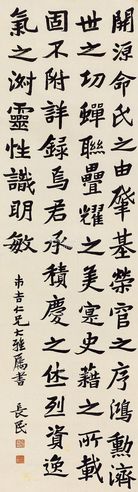 開源命氏之由肇基榮官之序勳濟
世之功蟬聯疊耀之美寔史籍之所載
固不附詳録焉君承積慶之休烈資逸
氣之淵靈性識明敏
市吉仁兄大雅屬書
長民